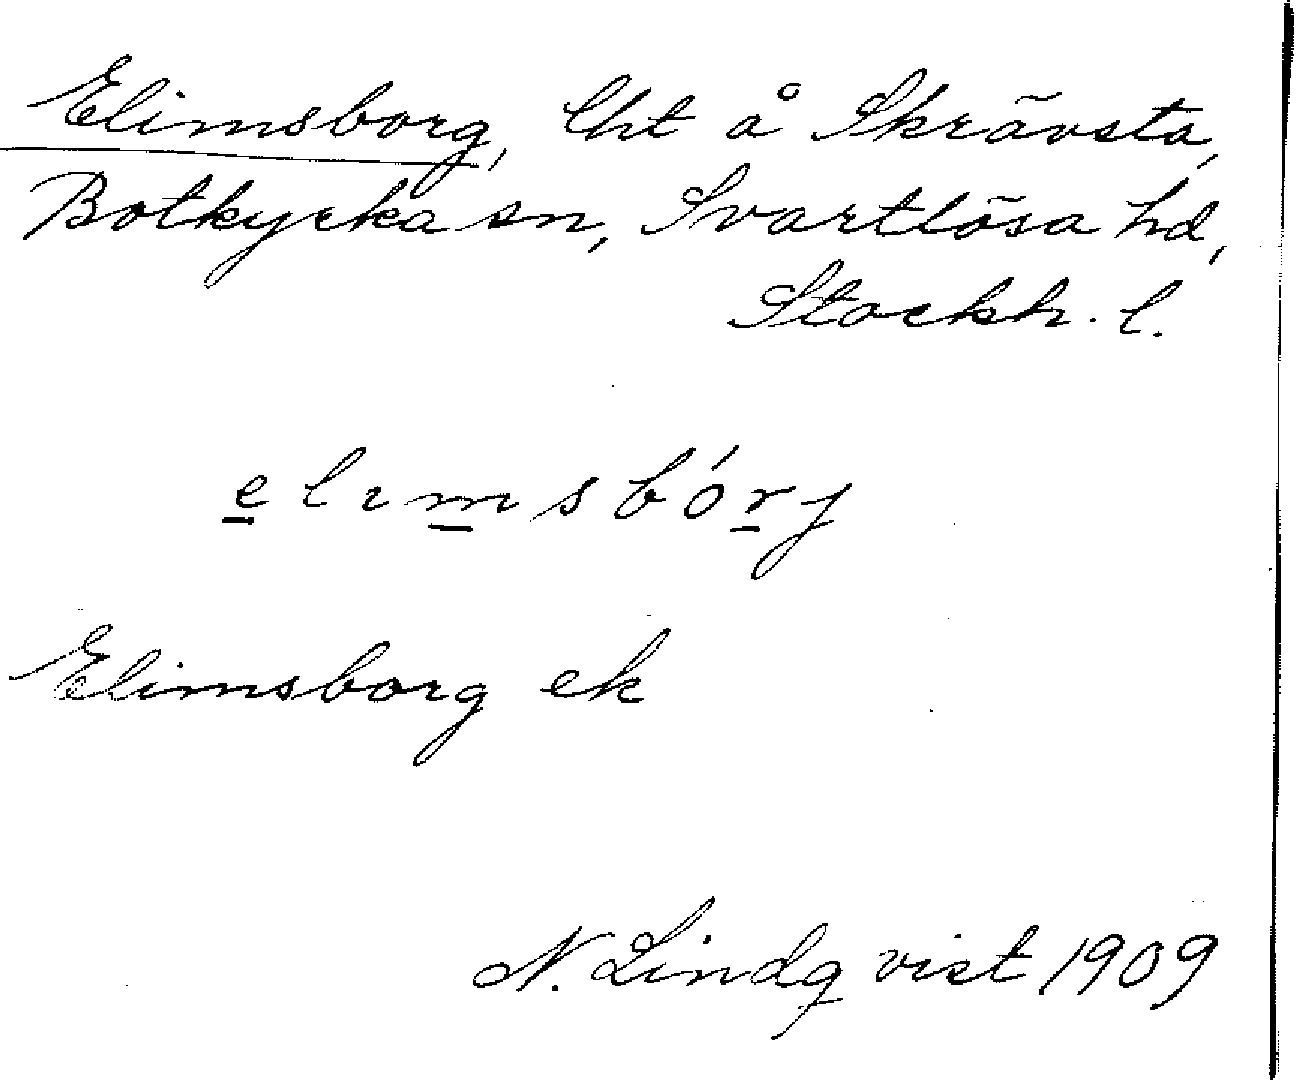 Elimsborg, lht å Skrävsta,
Botkyrka sn, Svartlösa hd,
Stockh. l.
elımsbórj
Elimsborg ek
N. Lindqvist 1909